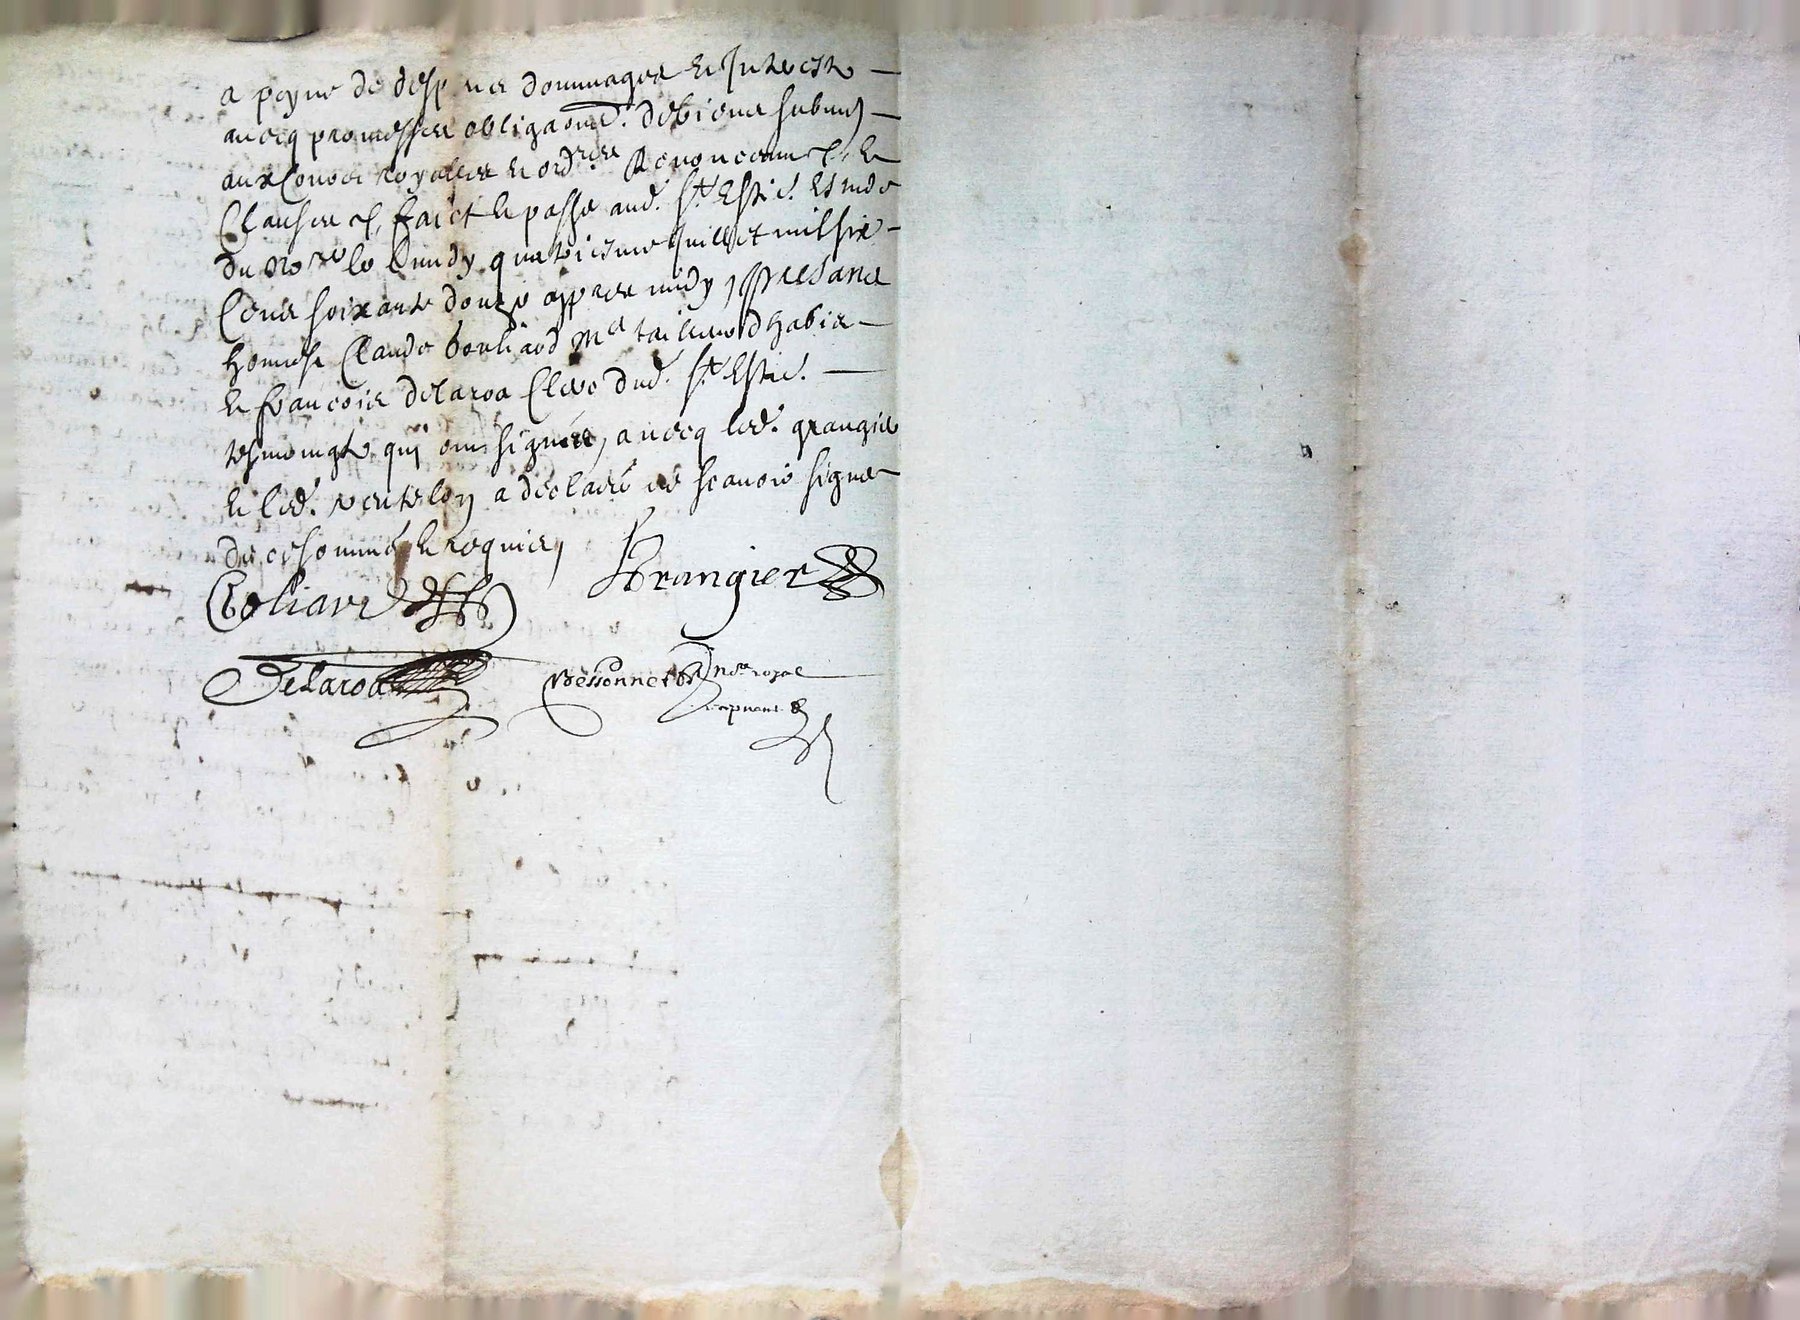 a peyne de desp ns dommages et Interestz —
avecq promesses obligaons. de biens submis —
aux Cours royalles et ordres Renonceant &, et
Clauses & faict et passé aud. St Estie. Estude
du nore le Lundy quatriesme Juillet mil six —
Cens soixante douze appres midy, presans
homes Claude borliard Me tailleur d'habis —
et françois delaroa Clerc dud. St Estie. —
tesmoingtz qui ont signés, avecq led. grangier
et led. ventelon a declaré ne scavoir signer
de ce sommé et requis,
Boliard Grangier
Delaroa Bessonnet nore royal